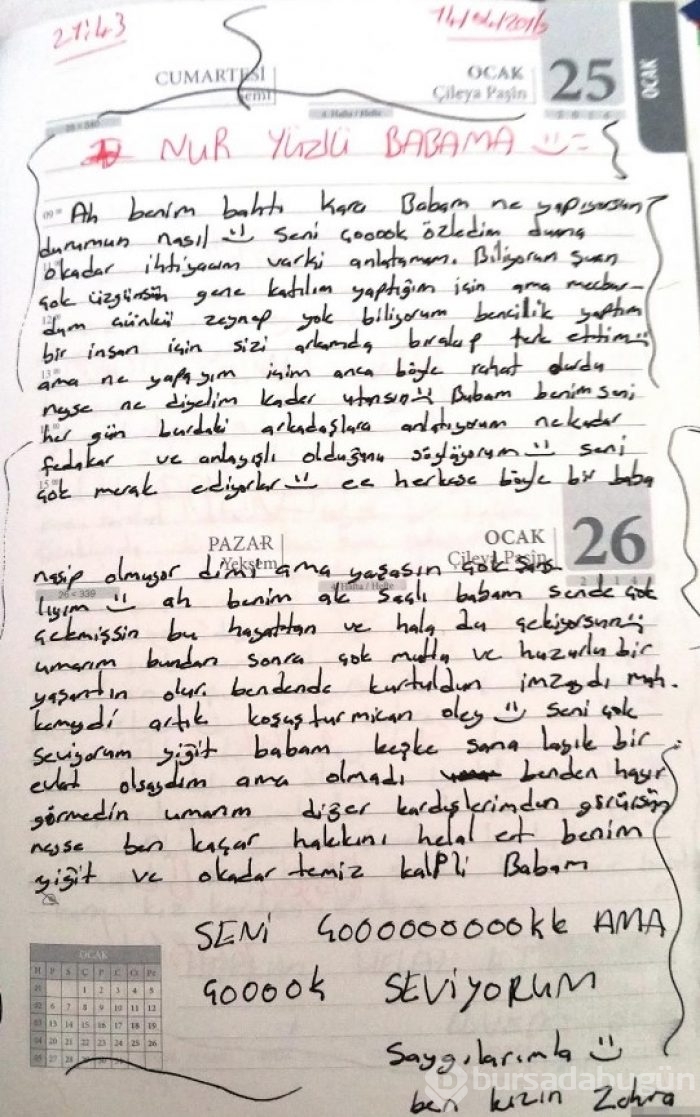 21:43
14/04/2016
CUMARTESİ
Şemî
OCAK
Çileya Paşîn
25
2 0 1 4
OCAK
4. Hafta / Hefte
25 < 340
NUR YÜZLÜ BABAMA :)=
09 00 Ah benim bahtı kara Babam ne yapıyorsun
durumun nasıl :) seni çooook özledim duana
okadar ihtiyacım varki anlatamam. Biliyorum şuan
çok üzgünsün gene katılım yaptığım için ama mecbur-
dum çünkü zeynep yok biliyorum bencilik yaptım
bir insan için sizi arkamda bırakıp terk ettim :(
ama ne yapayım içim anca böyle rahat durdu
neyse ne diyelim kader utansın :( Babam benim seni
her gün burdaki arkadaşlara anlatıyorum nekadar
fedakar ve anlayışlı olduğunu söylüyorum :) seni
çok merak ediyorlar :) ee herkese böyle bir baba
PAZAR
Yekşem
OCAK
Çileya Paşîn
26
2 0 1 4
4. Hafta / Hefte
26 < 339
nasip olmuyor dimi ama yaşasın çok şans
lıyım :) ah benim ak saçlı babam sende çok
çekmişsin bu hayattan ve hala da çekiyorsun :(
umarım bundan sonra çok mutlu ve huzurlu bir
yaşantın olur. bendende kurtuldun imzaydı mah.
kemeydi artık koşuşturmican oley :) seni çok
seviyorum yiğit babam keşke sana layık bir
evlat olsaydım ama olmadı benden hayır
görmedin umarım diğer kardişlerimden görürsün
neyse ben kaçar hakkını helal et benim
yiğit ve okadar temiz kalpli Babam
SENİ ÇOOOOOOOOOOkk AMA
ÇOOOOk SEVİYORUM
Saygılarımla :)
ben kızın Zehra
OCAK
H P S Ç P C Ct Pz
01 1 2 3 4 5
02 6 7 8 9 10 11 12
03 13 14 15 16 17 18 19
04 20 21 22 23 24 25 26
05 27 28 29 30 31
bursadabugün